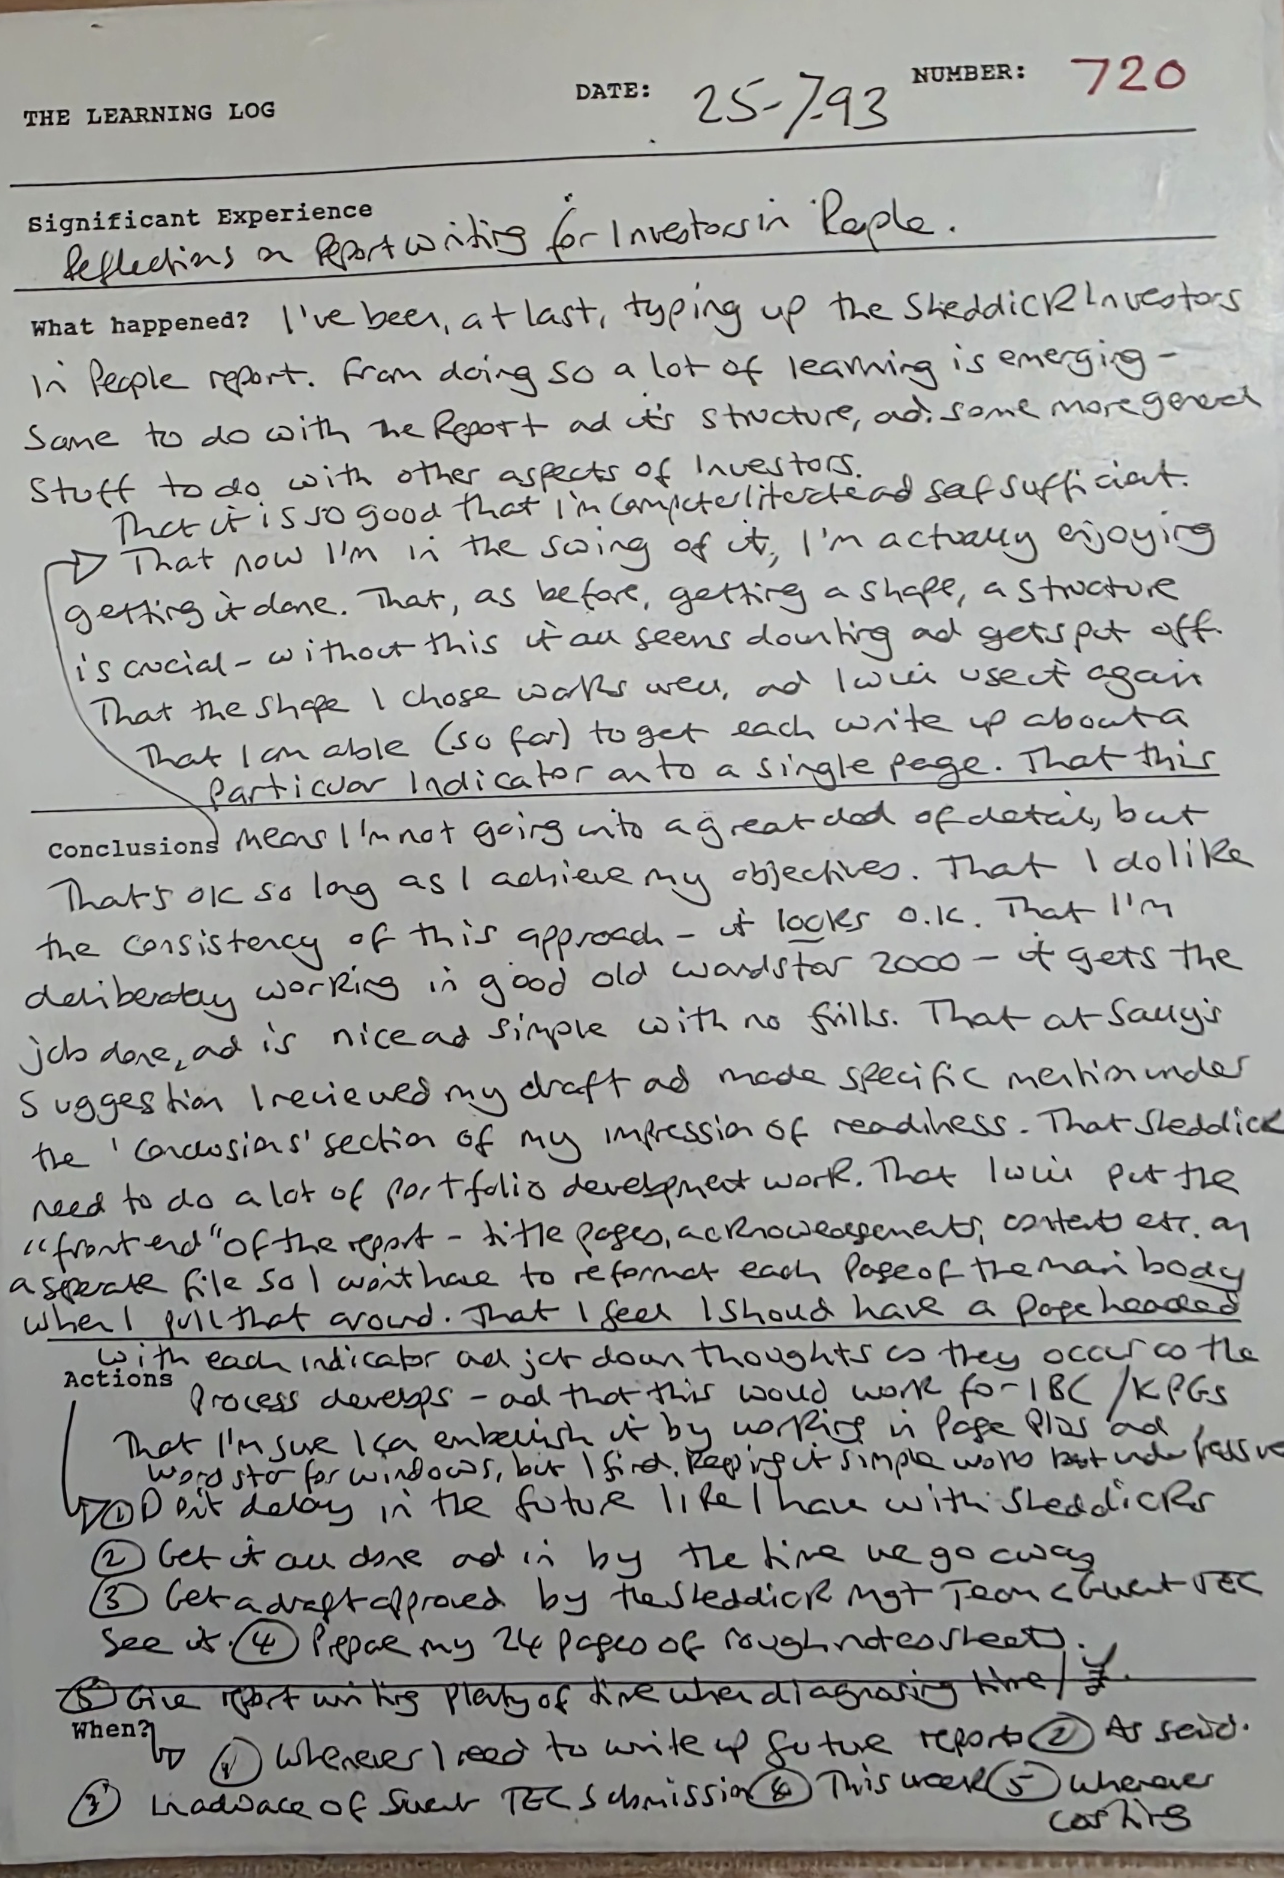 THE LEARNING LOG DATE: 25-7-93 NUMBER: 720
Significant Experience
Reflections on Report writing for Investors in People.
What happened? I've been, at last, typing up the Sheddick Investors
in People report. From doing so a lot of learning is emerging -
Some to do with the Report ad it's structure, ad some more general
Stuff to do with other aspects of Investors.
That it is so good that I'm computer literate ad self sufficient.
That now I'm in the swing of it, I'm actually enjoying
getting it done. That, as before, getting a shape, a structure
is crucial - without this it all seems daunting ad gets put off.
That the shape I chose works well, ad I will use it again
That I am able (so far) to get each write up about a
Particular Indicator onto a single page. That this
Conclusions means I'm not going into a great deal of detail, but
That's OK so long as I achieve my objectives. That I do like
the consistency of this approach - it looks O.K. That I'm
deliberately working in good old wordstar 2000 - it gets the
job done, ad is nice ad simple with no frills. That at Sally's
Suggestion I reviewed my draft ad made specific mention under
the 'Conclusions' section of my impression of readiness. That Sheddick
need to do a lot of portfolio development work. That I will put the
"front end" of the report - title pages, acknowledgements, contents etc. on
a seperate file so I won't have to reformat each Page of the main body
when I pull that around. That I feel I should have a page headed
with each indicator ad jot down thoughts as they occur as the
Actions
Process develops - ad that this would work for IBC / KPGs
That I'm sure I can embellish it by working in Page Plus ad
Wordstar for windows, but I find keeping it simple works best under pressure
① Don't delay in the future like I have with Sheddicks
② Get it all done ad in by the time we go away
③ Get a draft approved by the Sheddick Mgt Team & Gwent TEC
See it. ④ Prepare my 24 pages of rough notes sheets.
⑤ Give report writing plenty of time when diagnosing time/£.
When?
① Whenever I need to write up future reports ② As said.
③ In advance of Gwent TEC submission ④ This week ⑤ Whenever
costing